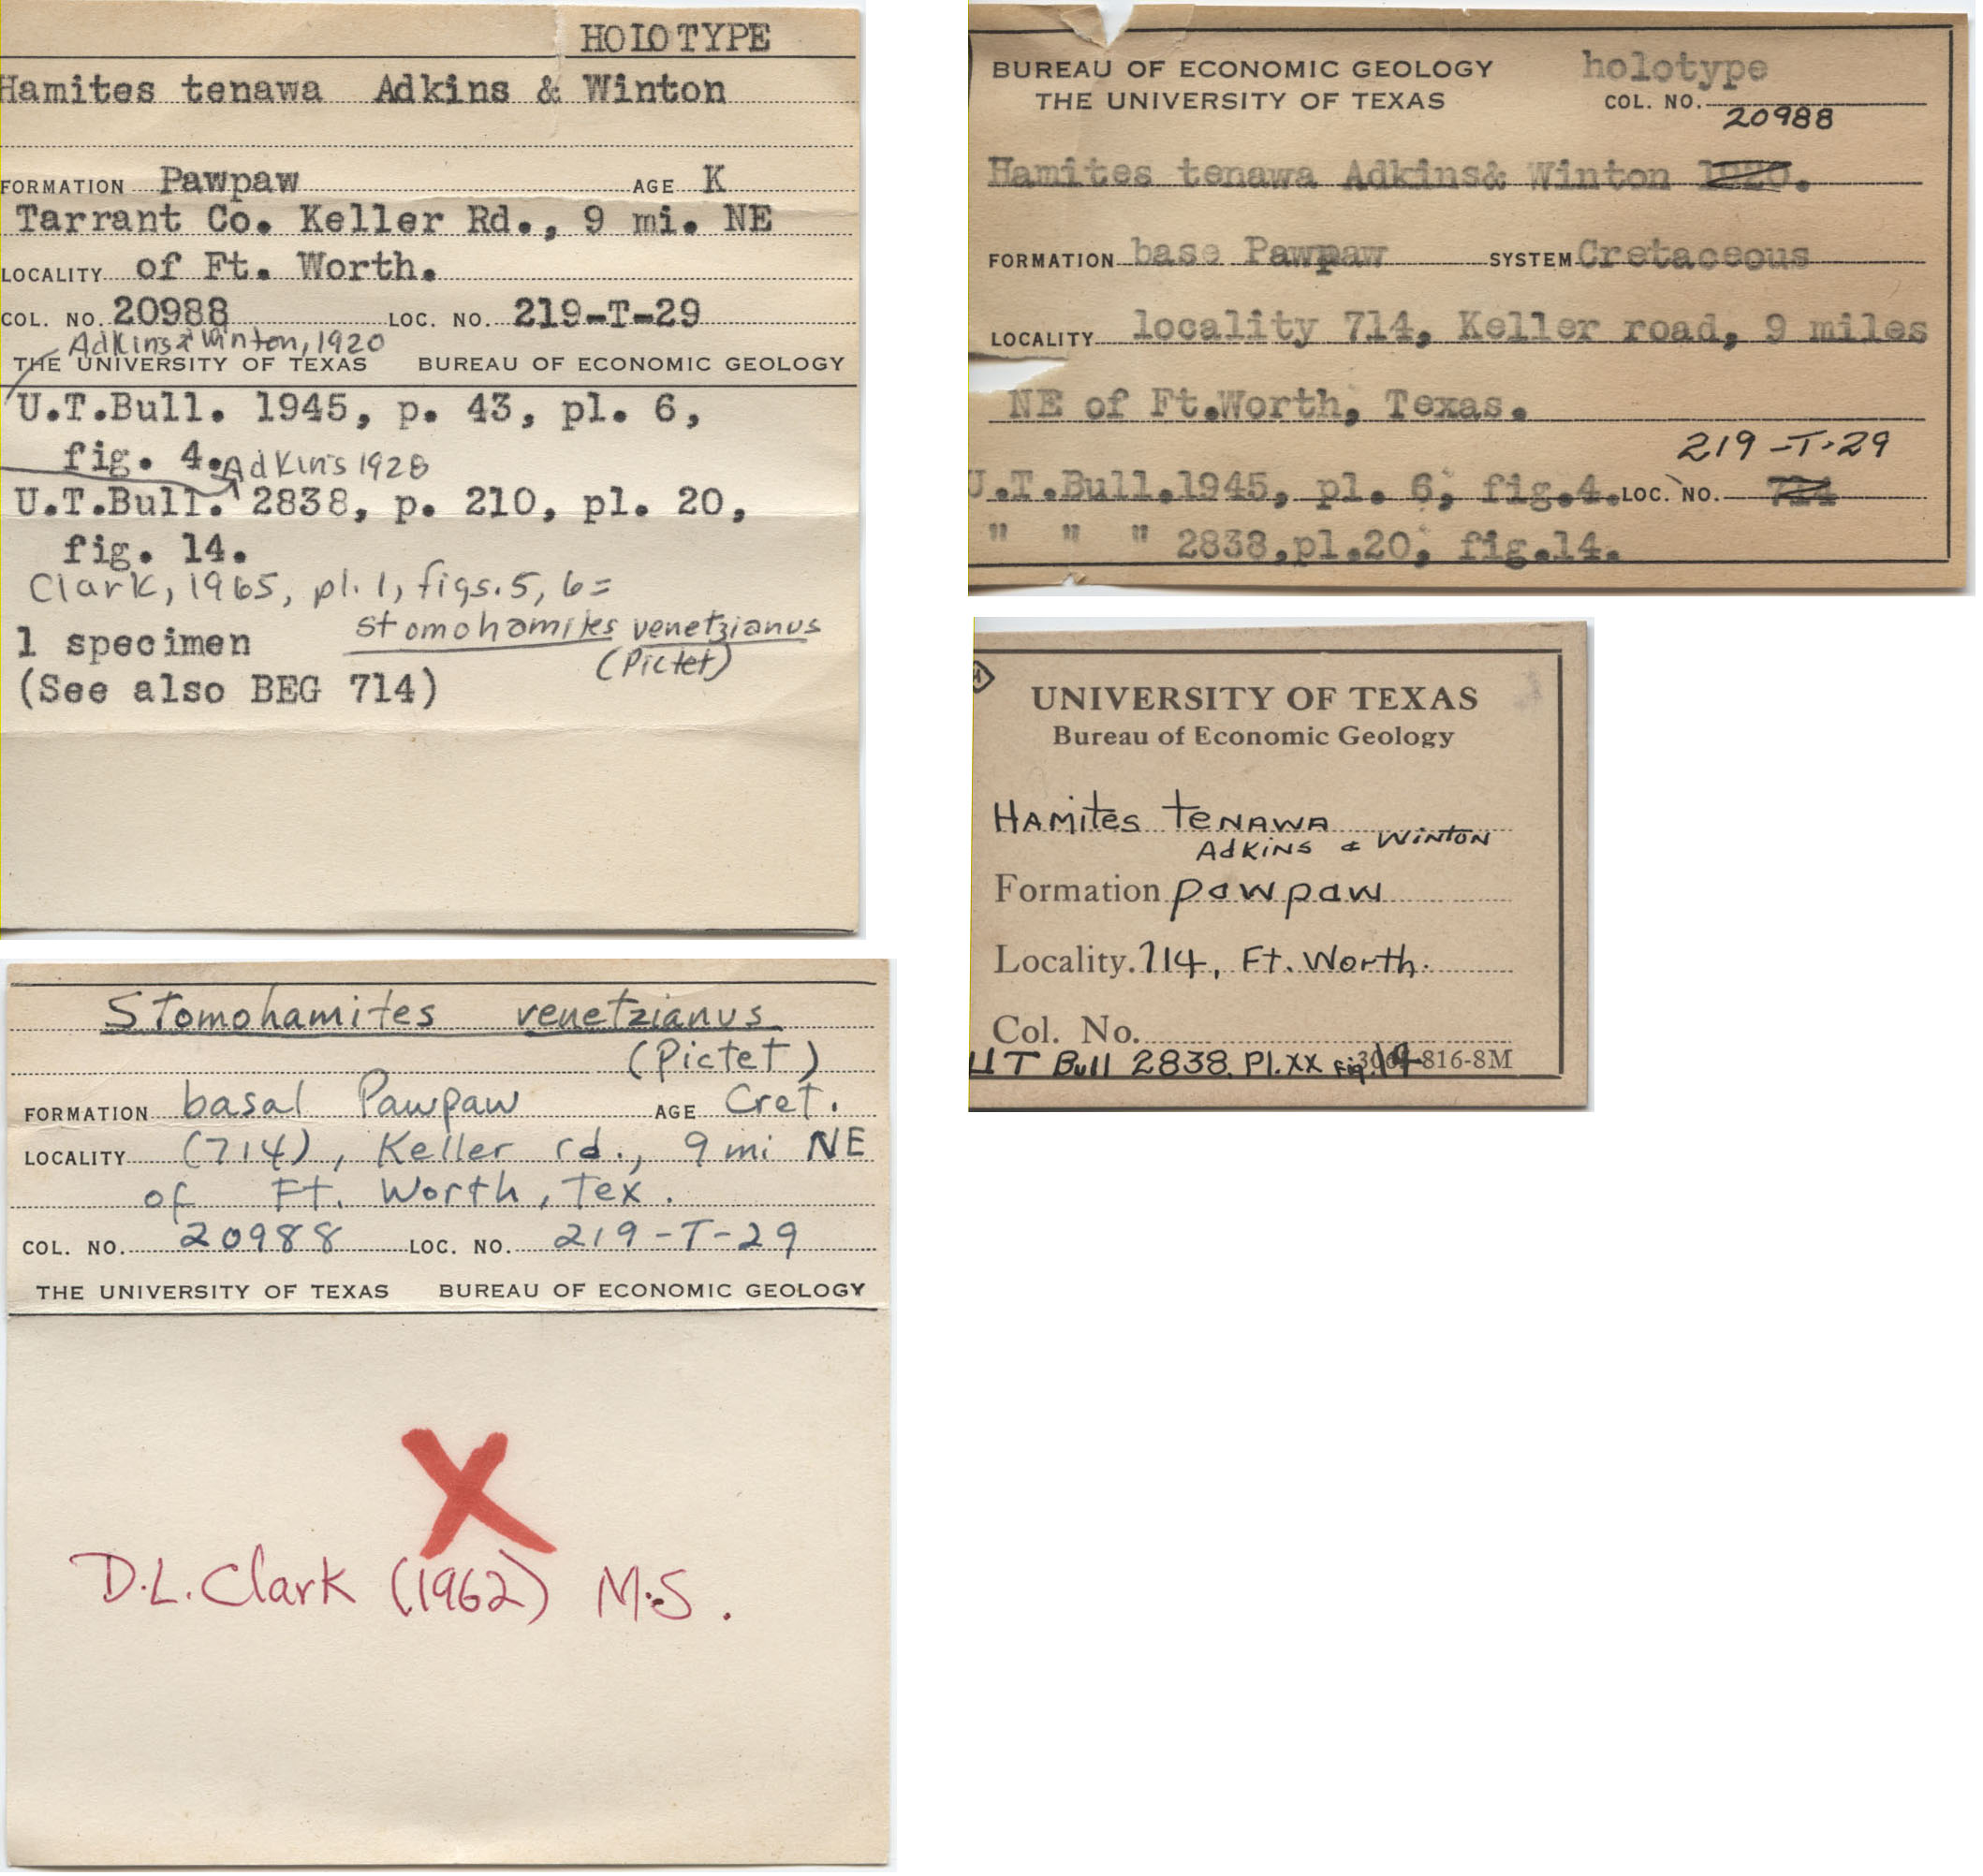 HOLOTYPE
Hamites tenawa Adkins & Winton
FORMATION Pawpaw AGE K
Tarrant Co. Keller Rd., 9 mi. NE
LOCALITY of Ft. Worth.
COL. NO. 20988 LOC. NO. 219-T-29
Adkins & Winton, 1920
THE UNIVERSITY OF TEXAS BUREAU OF ECONOMIC GEOLOGY
U.T.Bull. 1945, p. 43, pl. 6,
fig. 4. Adkins 1928
U.T.Bull. 2838, p. 210, pl. 20,
fig. 14.
Clark, 1965, pl. 1, figs. 5, 6 =
Stomohamites venetzianus
1 specimen
(Pictet)
(See also BEG 714)
BUREAU OF ECONOMIC GEOLOGY holotype
THE UNIVERSITY OF TEXAS COL. NO.
20988
Hamites tenawa Adkins& Winton 1920.
FORMATION base Pawpaw SYSTEM Cretaceous
LOCALITY locality 714, Keller road, 9 miles
NE of Ft.Worth, Texas.
219-T-29
U.T.Bull.1945, pl. 6, fig.4. LOC. NO. 714
" " " 2838,pl.20, fig.14.
UNIVERSITY OF TEXAS
Bureau of Economic Geology
Hamites tenawa
Adkins & Winton
Formation pawpaw
Locality. 714, Ft. Worth.
Col. No.
UT Bull 2838. Pl. XX Fig. 14 816-8M
Stomohamites venetzianus
(Pictet)
FORMATION basal Pawpaw AGE Cret.
LOCALITY (714), Keller rd., 9 mi NE
of Ft. Worth, Tex.
COL. NO. 20988 LOC. NO. 219-T-29
THE UNIVERSITY OF TEXAS BUREAU OF ECONOMIC GEOLOGY
X
D.L. Clark (1962) M.S.